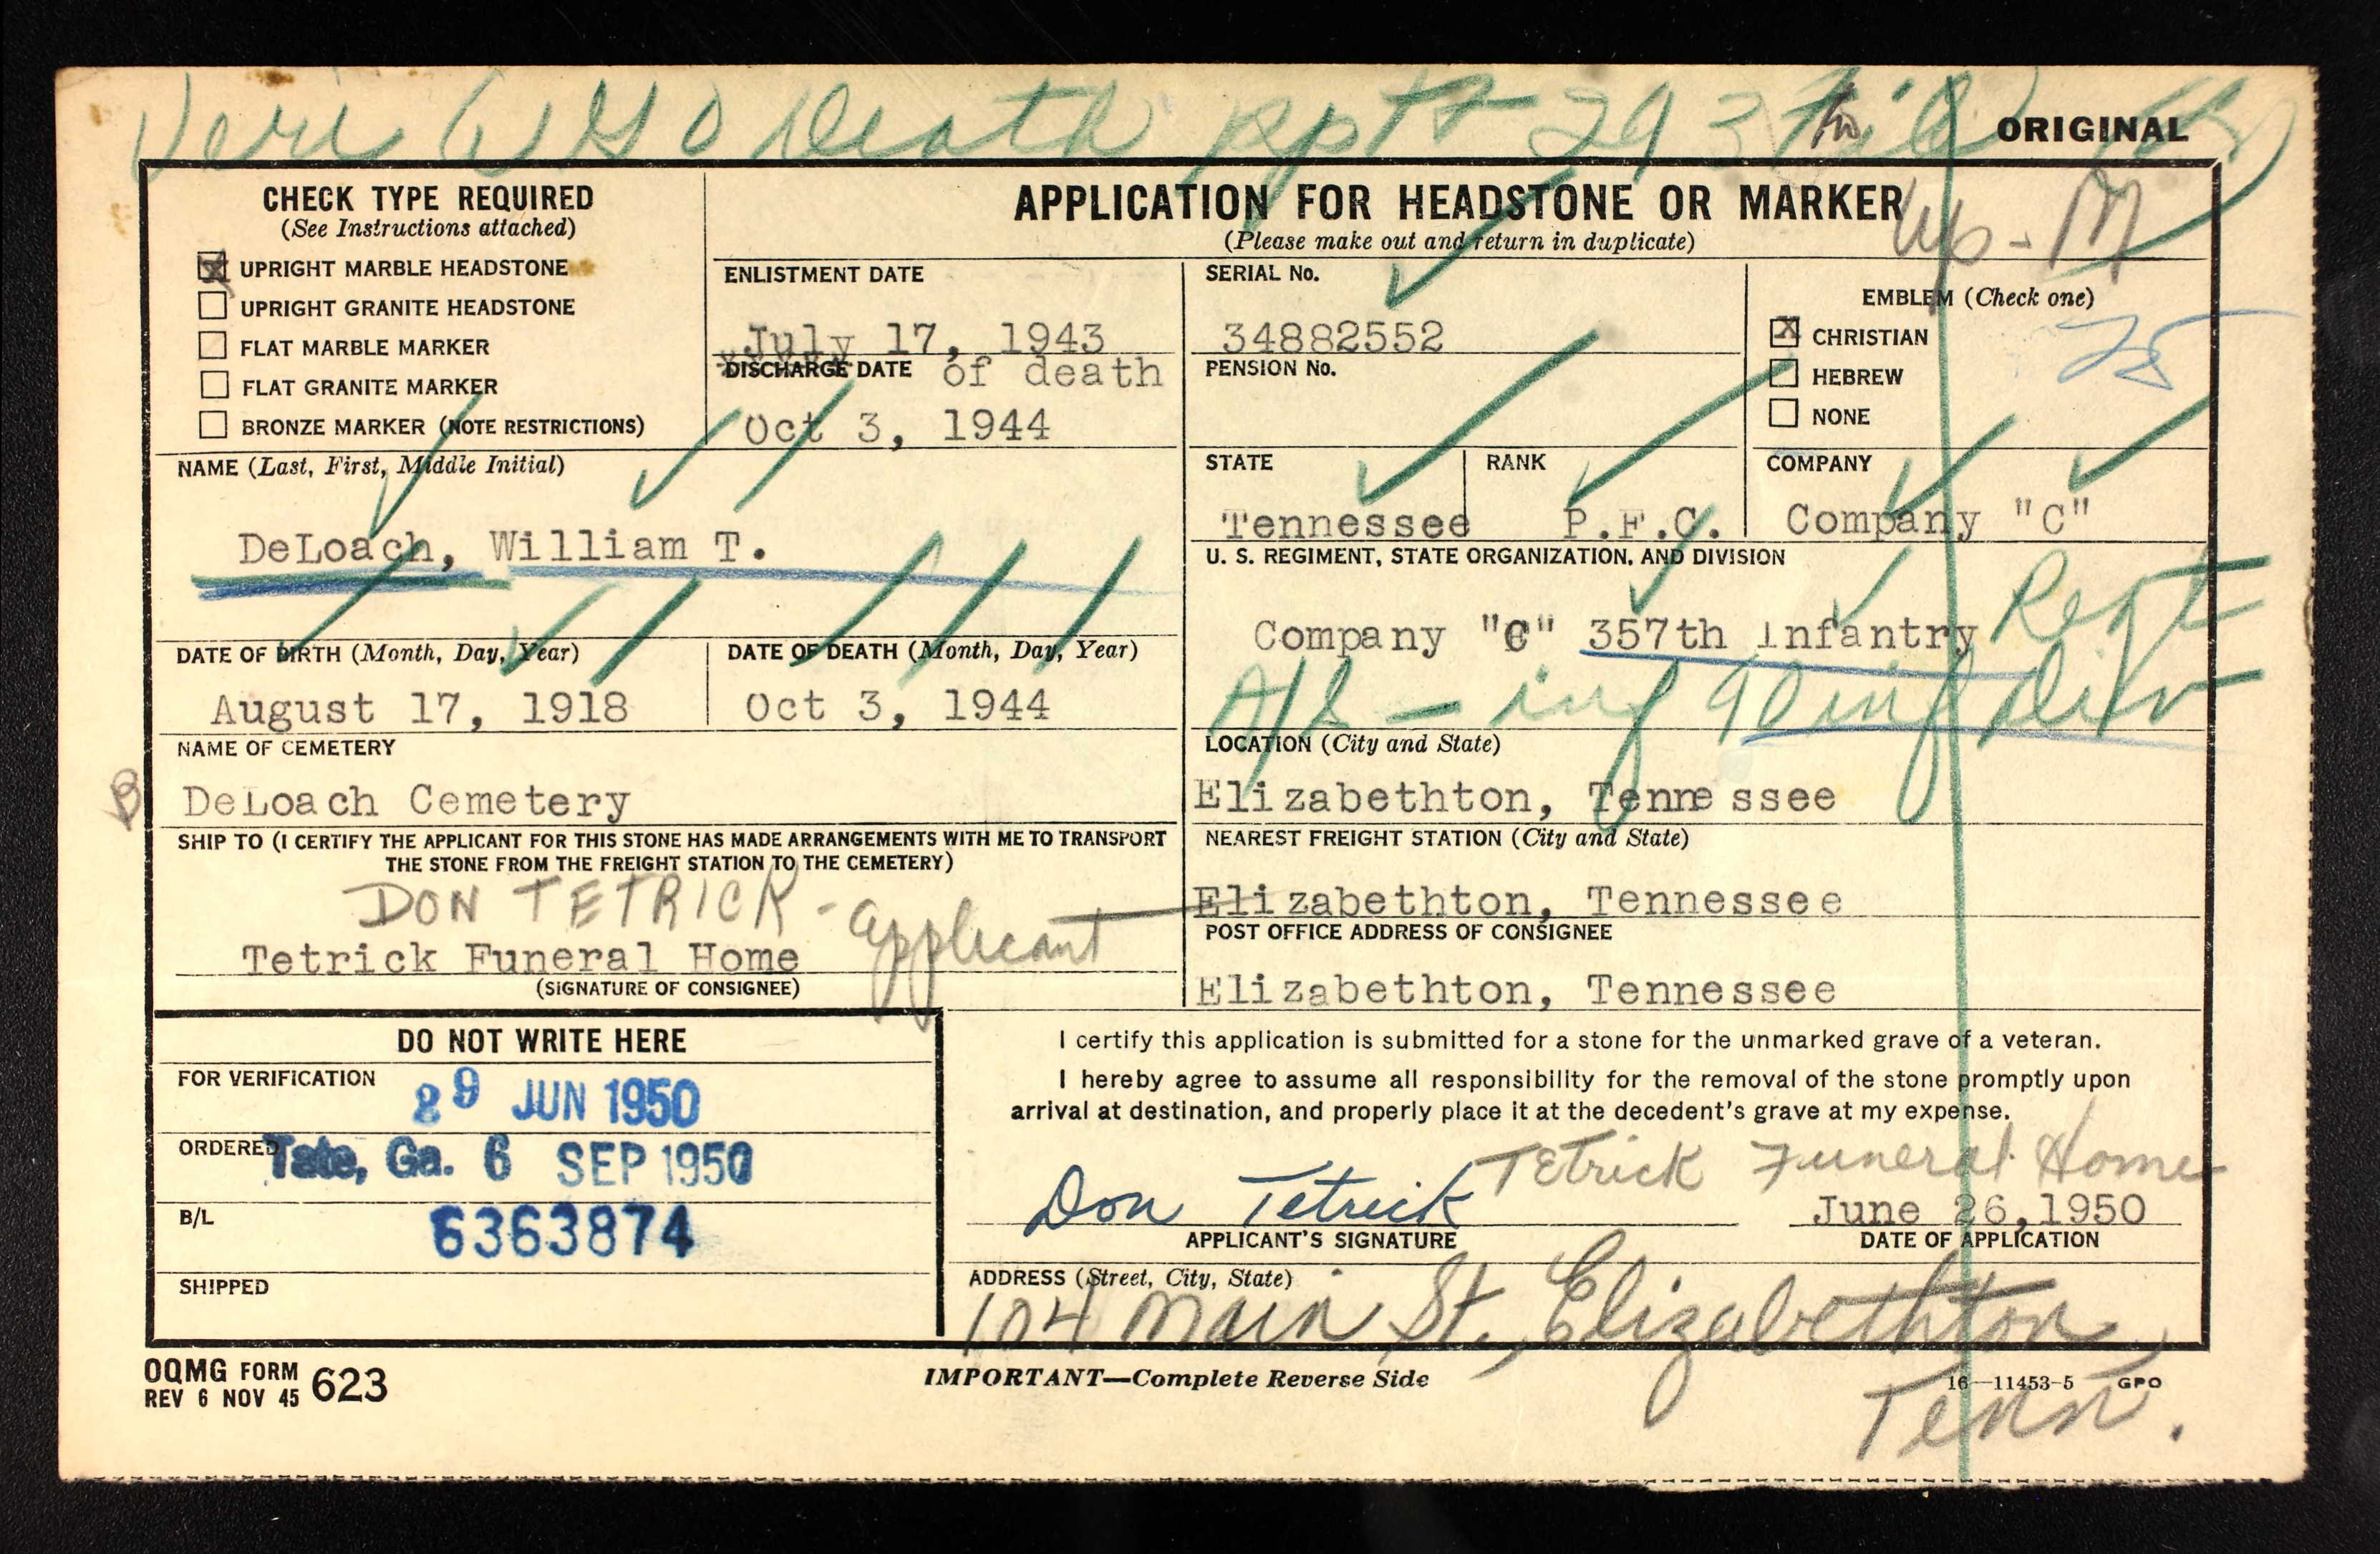 Veri Death rptt 293 file
ORIGINAL
CHECK TYPE REQUIRED
(See Instructions attached)
UPRIGHT MARBLE HEADSTONE
UPRIGHT GRANITE HEADSTONE
FLAT MARBLE MARKER
FLAT GRANITE MARKER
BRONZE MARKER (NOTE RESTRICTIONS)
APPLICATION FOR HEADSTONE OR MARKER
(Please make out and return in duplicate)
Up-M
ENLISTMENT DATE
July 17, 1943
DISCHARGE DATE of death
Oct 3, 1944
SERIAL No.
34882552
PENSION No.
EMBLEM (Check one)
CHRISTIAN
HEBREW
NONE
NAME (Last, First, Middle Initial)
DeLoach, William T.
STATE
Tennessee
RANK
P.F.C.
COMPANY
Company "C"
U. S. REGIMENT, STATE ORGANIZATION, AND DIVISION
Company "C" 357th Infantry Regt
A/S - inf 90 inf Div
DATE OF BIRTH (Month, Day, Year)
August 17, 1918
DATE OF DEATH (Month, Day, Year)
Oct 3, 1944
NAME OF CEMETERY
B DeLoach Cemetery
LOCATION (City and State)
Elizabethton, Tennessee
SHIP TO (I CERTIFY THE APPLICANT FOR THIS STONE HAS MADE ARRANGEMENTS WITH ME TO TRANSPORT
THE STONE FROM THE FREIGHT STATION TO THE CEMETERY)
DON TETRICK - applicant
Tetrick Funeral Home
(SIGNATURE OF CONSIGNEE)
NEAREST FREIGHT STATION (City and State)
Elizabethton, Tennessee
POST OFFICE ADDRESS OF CONSIGNEE
Elizabethton, Tennessee
DO NOT WRITE HERE
FOR VERIFICATION
29 JUN 1950
ORDERED
Tate, Ga. 6 SEP 1950
B/L
6363874
SHIPPED
I certify this application is submitted for a stone for the unmarked grave of a veteran.
I hereby agree to assume all responsibility for the removal of the stone promptly upon
arrival at destination, and properly place it at the decedent's grave at my expense.
Don Tetrick Tetrick Funeral Home
APPLICANT'S SIGNATURE
June 26, 1950
DATE OF APPLICATION
ADDRESS (Street, City, State)
104 Main St., Elizabethton,
Tenn.
OQMG FORM 623
REV 6 NOV 45
IMPORTANT—Complete Reverse Side
16—11453-5 GPO